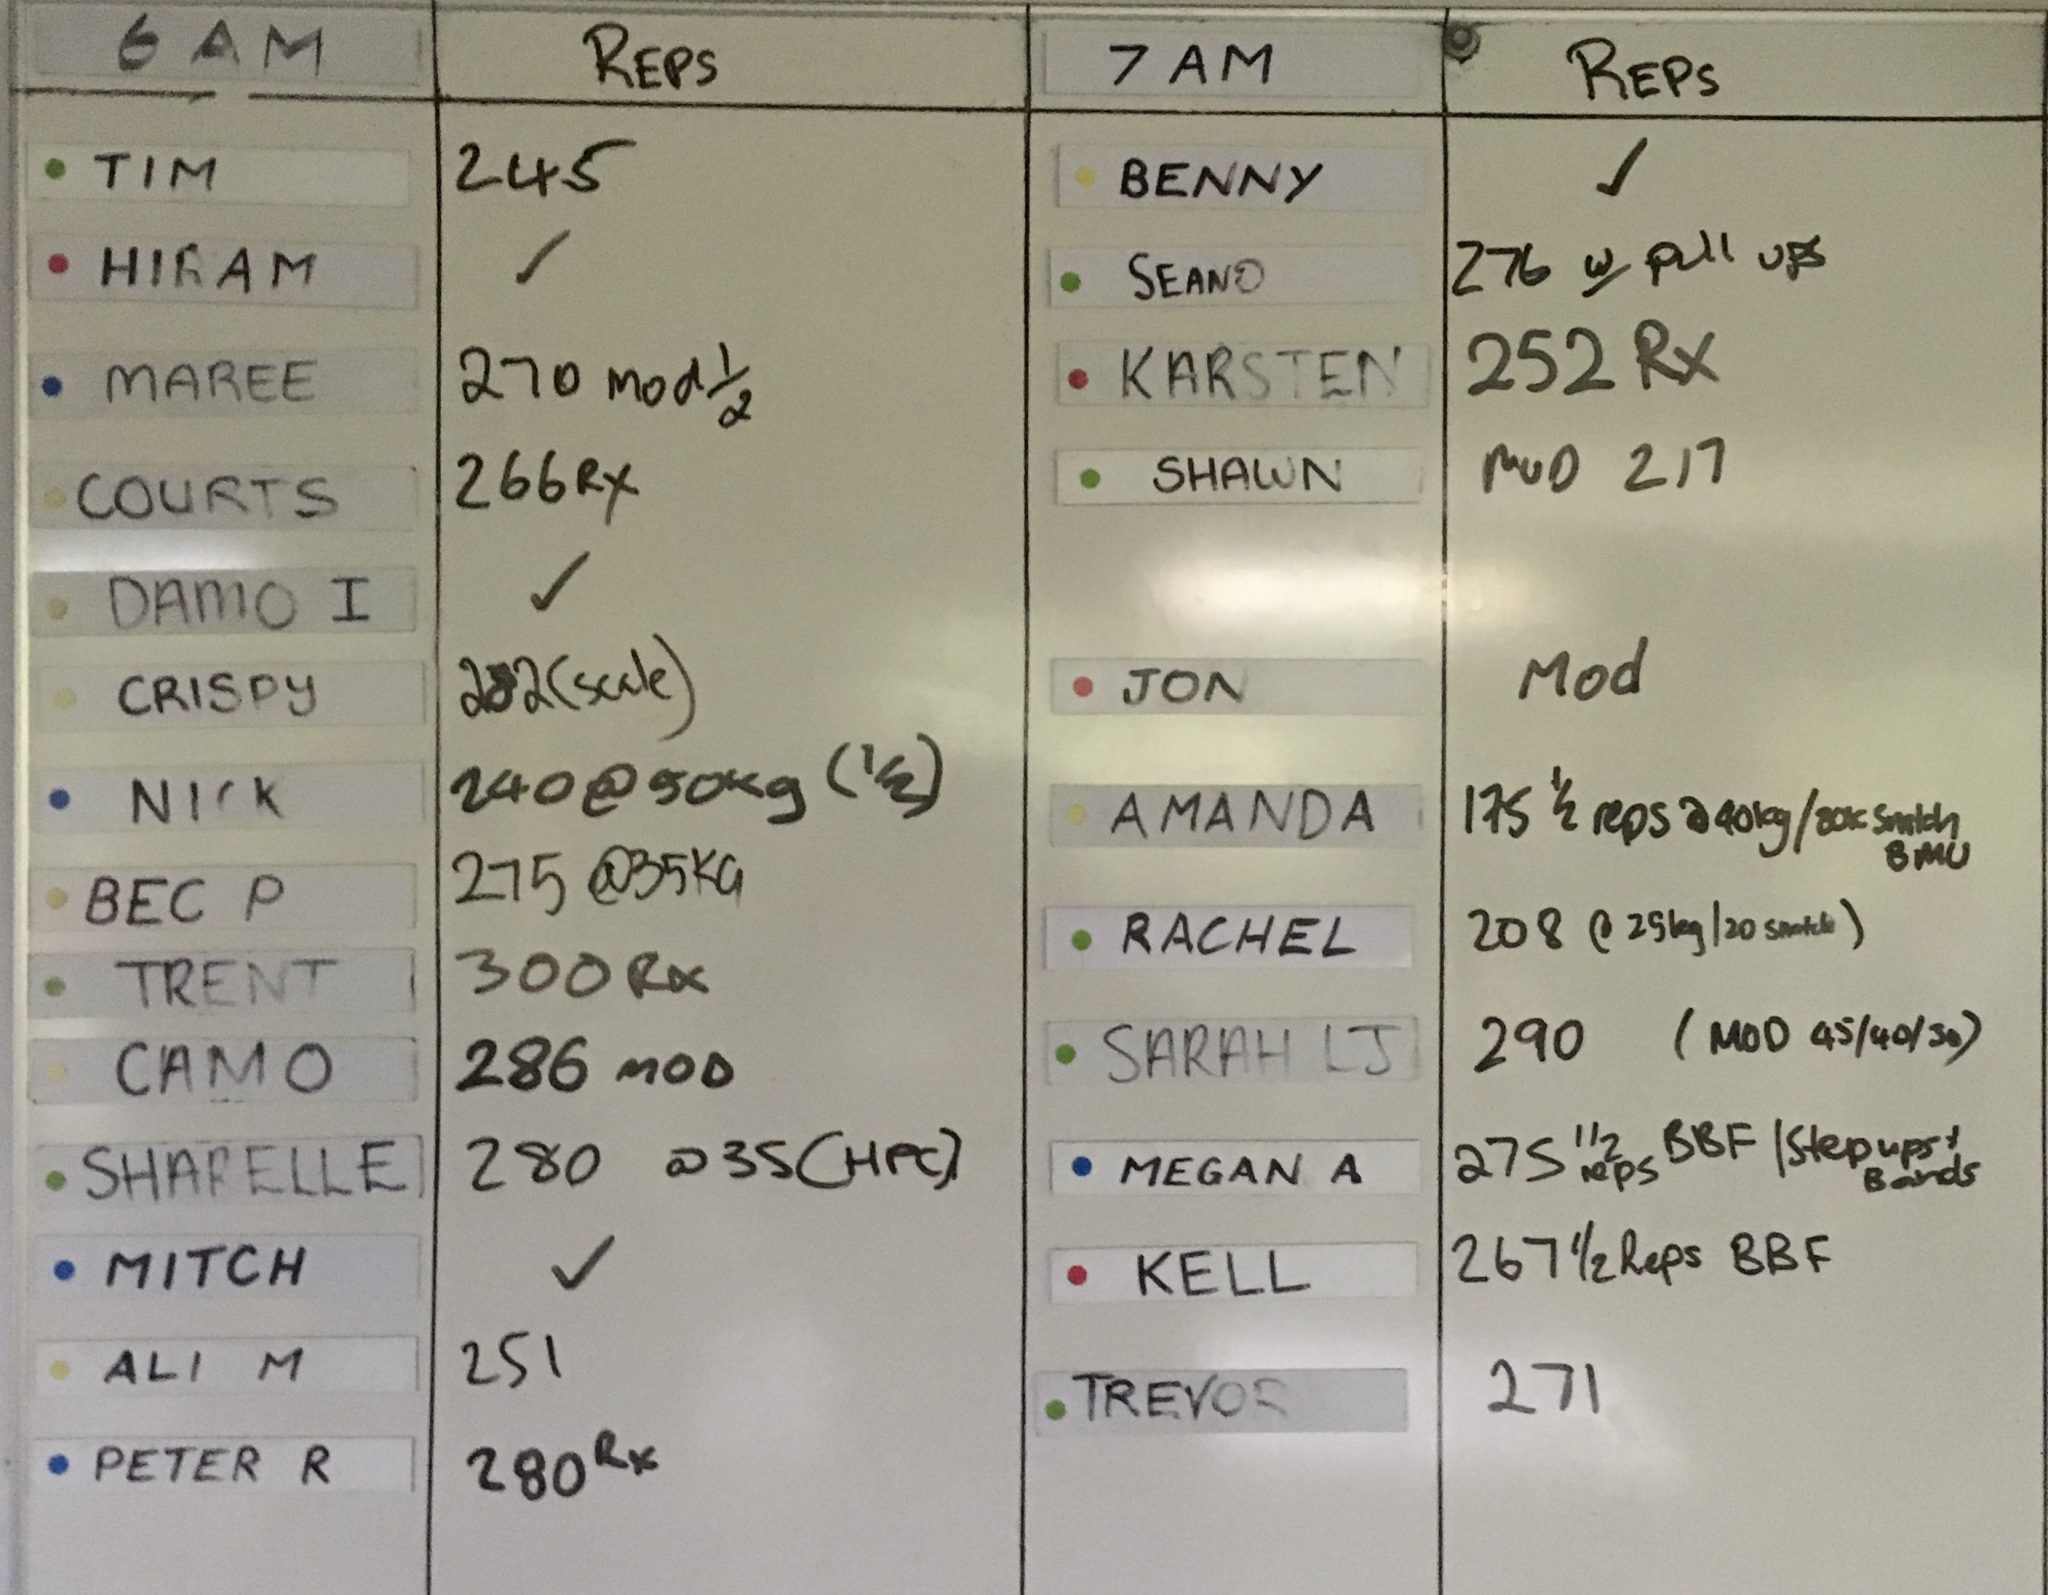 6 AM REPS 7 AM REPS
TIM 245 BENNY ✓
HIRAM ✓ SEANO 276 w/ pull ups
MAREE 270 mod 1/2 KARSTEN 252 Rx
COURTS 266 Rx SHAWN MOD 217
DAMO I ✓
CRISPY 282 (scale) JON Mod
NICK 240 @ 50kg (1/2) AMANDA 175 1/2 reps @ 40kg / snatch
BMU
BEC P 275 @35KG RACHEL 208 @ 25kg/20 snatch)
TRENT 300 Rx
CAMO 286 MOD SARAH LJ 290 (MOD 45/40/30)
SHAPELLE 280 @35 (HPC) MEGAN A 275 1/2 reps BBF / Step ups +
Bands
MITCH ✓ KELL 267 1/2 Reps BBF
ALI M 251 TREVOR 271
PETER R 280 Rx